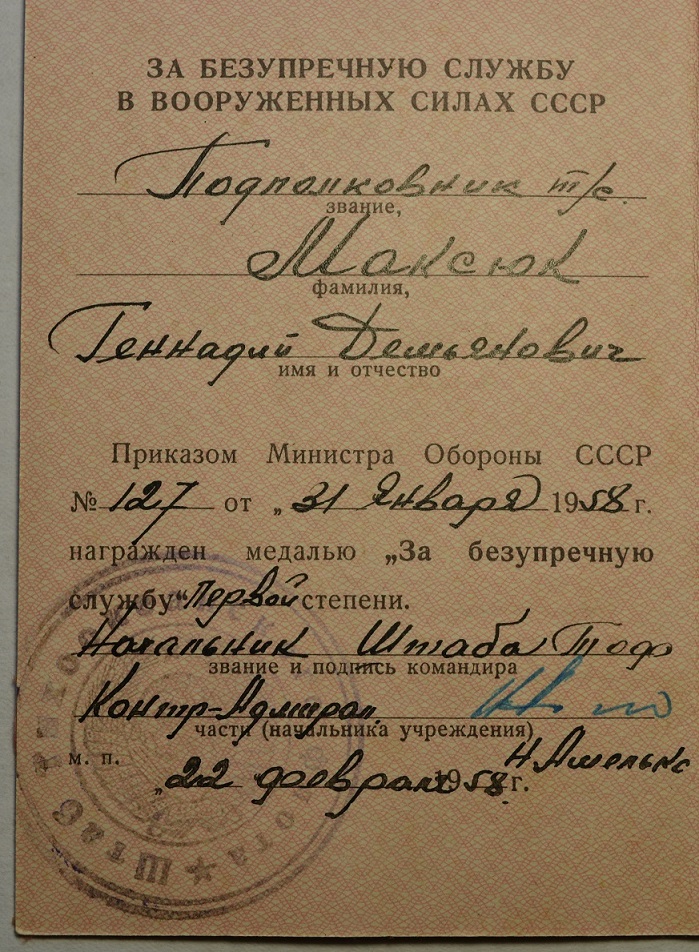 ЗА БЕЗУПРЕЧНУЮ СЛУЖБУ
В ВООРУЖЕННЫХ СИЛАХ СССР
Подполковник т/с.
звание,
Максюк
фамилия,
Геннадий Демьянович
имя и отчество
Приказом Министра Обороны СССР
№ 127 от „31 Января 1958 г.
награжден медалью „За безупречную
службу“ Первой степени.
Начальник Штаба Тоф
звание и подпись командира
Контр-Адмирал
части (начальника учреждения)
Н. Амелько
м. п.
„22 февраля 1958 г.
Штаб Тихоокеанского флота